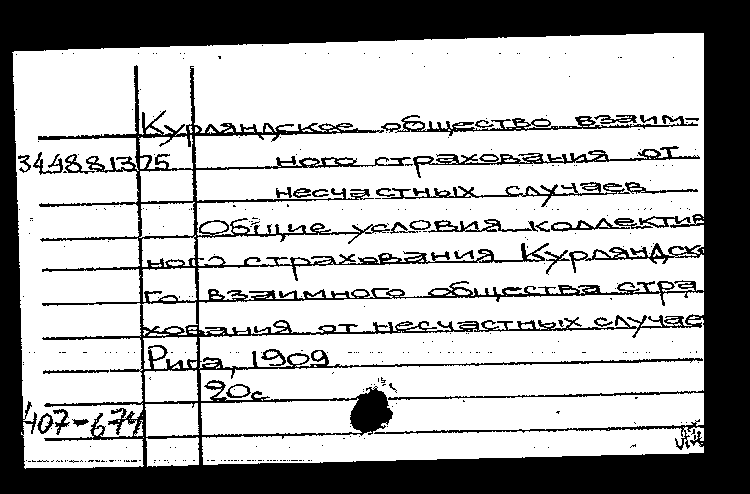 Курляндское общество взаим-
344881375 ного страхования от
несчастных случаев
Общие условия коллектив
ного страхования Курляндско
го взаимного общества стра
хования от несчастных случае
Рига, 1909
20с
407-674